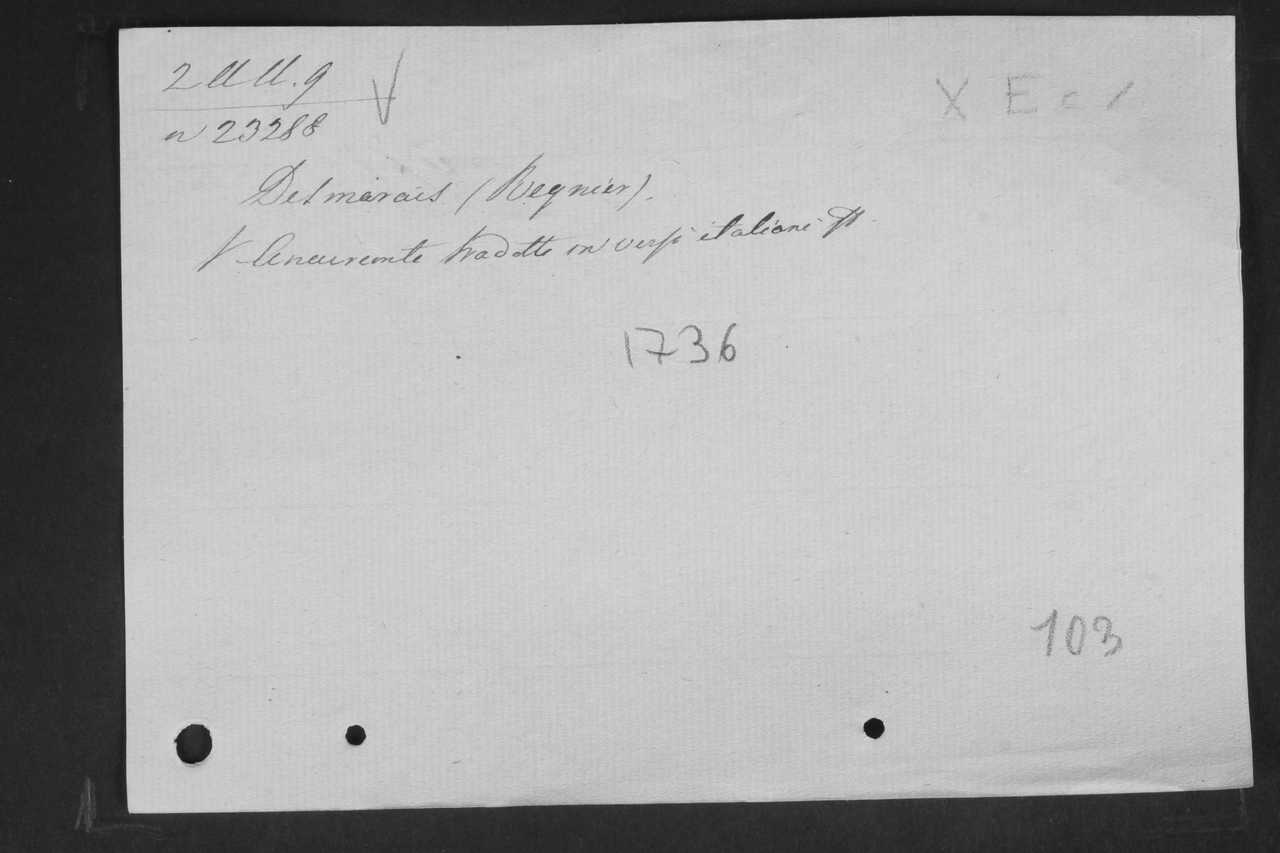 2 U U. 9
X E c /
n 23288
Desmarais (Regnier).
V. Anacreonte tradotto in versi italiani
1736
103